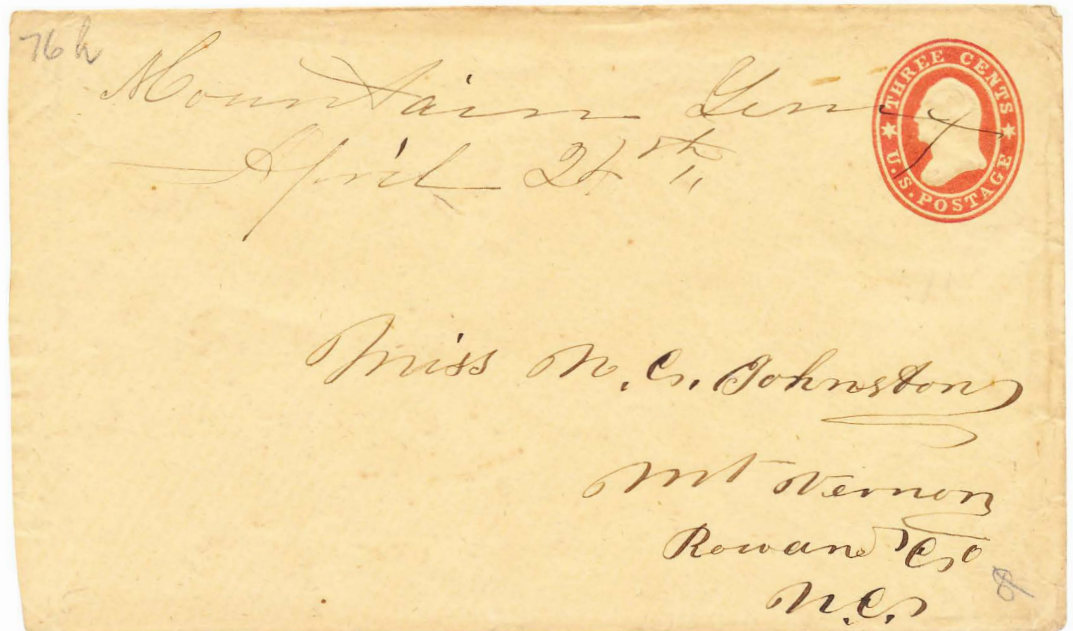 76h
Mountain
April 24th
THREE CENTS
U.S. POSTAGE
Miss N. C. Johnston
Mt Vernon
Rowan Co
N.C.
8